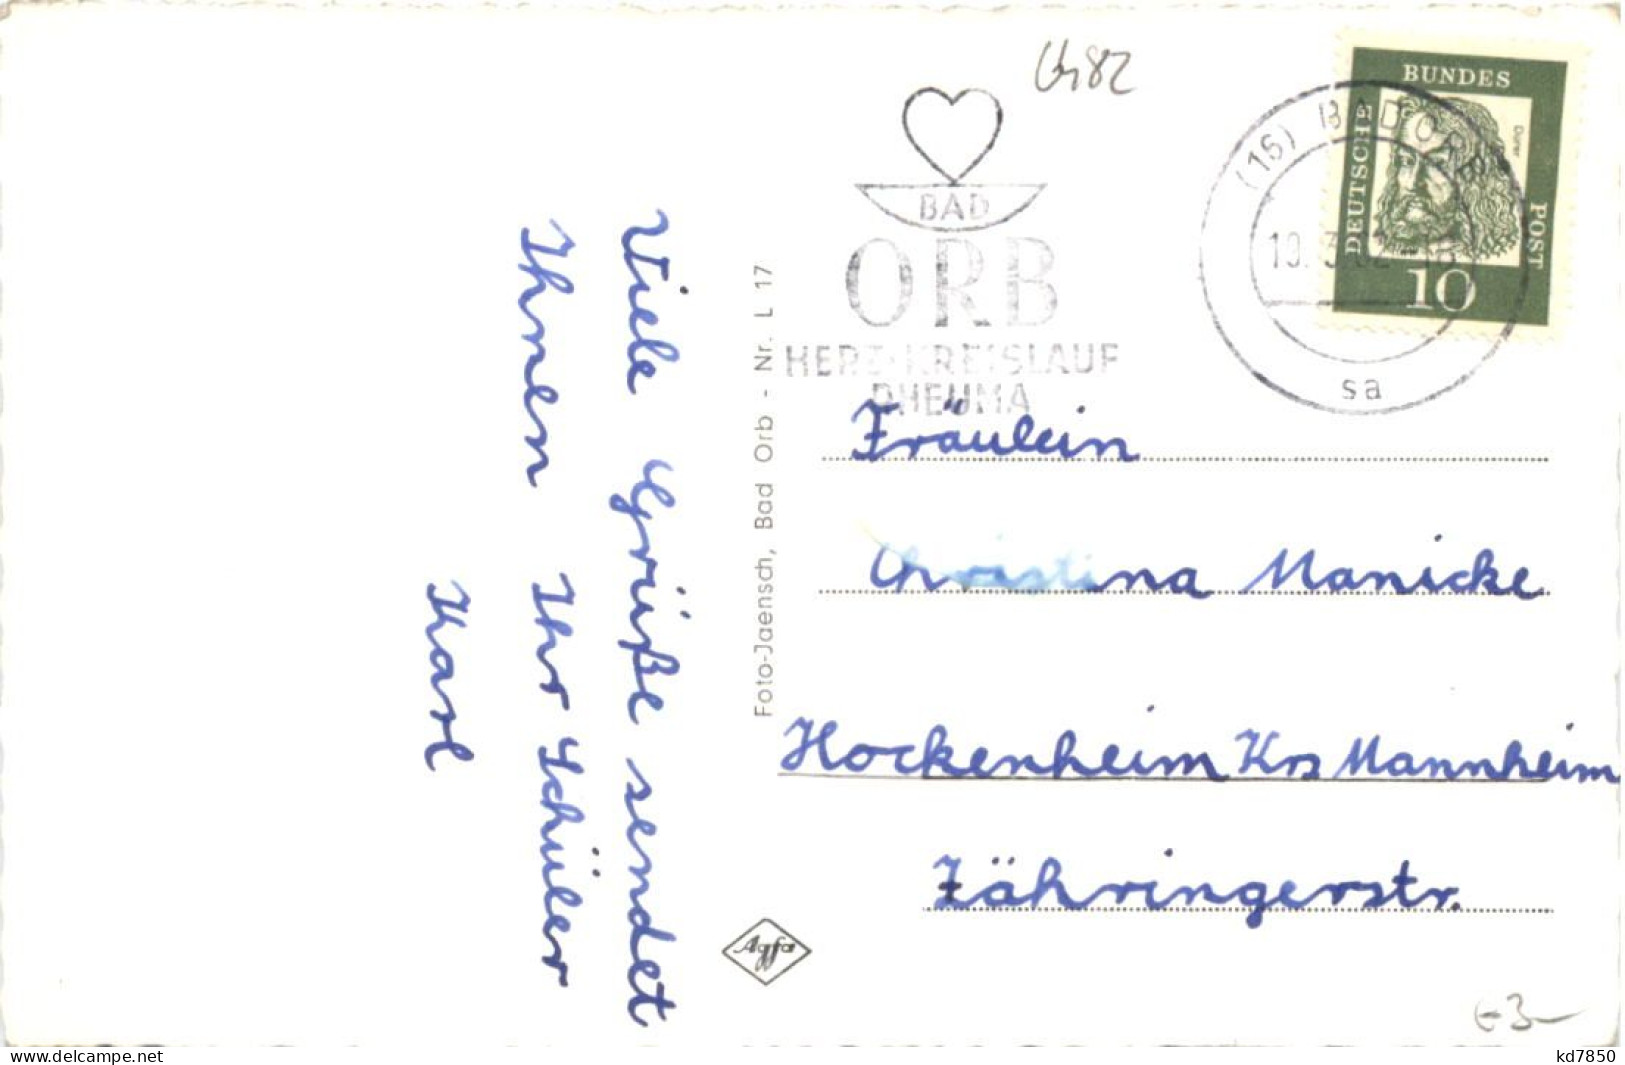 Gr82
BAD
ORB
HERZ-KREISLAUF
RHEUMA
(16) BAD ORB
sa
DEUTSCHE
BUNDES
POST
Dürer
10
Viele Grüße sendet
Ihnen Ihr Schüler
Karl
Foto-Jaensch, Bad Orb - Nr. L 17
Agfa
Fräulein
Christina Manicke
Hockenheim Krs Mannheim
Zähringerstr.
€3-
www.delcampe.net
kd7850